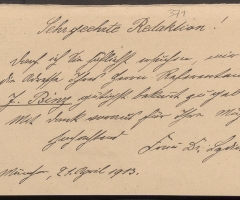 371
Sehrgeehrte Redaktion!
Darf ich Sie höflichst ersuchen, mir
die Adresse Ihres Herrn Referenten
J. Bing gütigst bekannt zu geben
Mit Dank voraus für Ihre
hochachtend
Frau Dr.
München, 21. April 1913.